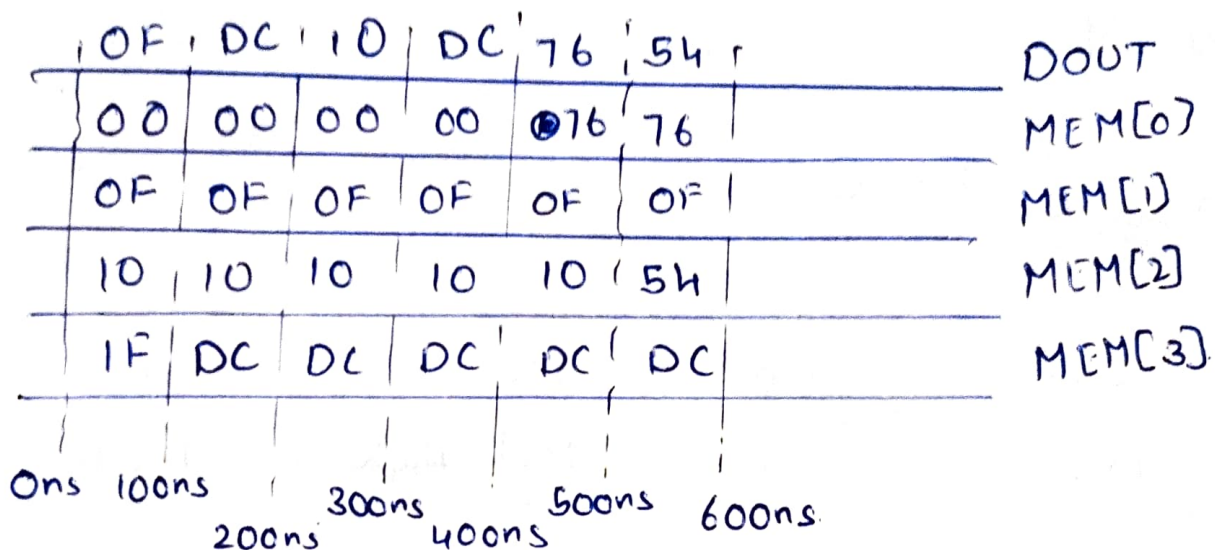 0F DC 10 DC 76 54 DOUT
00 00 00 00 76 76 MEM[0]
0F 0F 0F 0F 0F 0F MEM[1]
10 10 10 10 10 54 MEM[2]
1F DC DC DC DC DC MEM[3].
0ns 100ns 300ns 500ns 600ns.
200ns 400ns